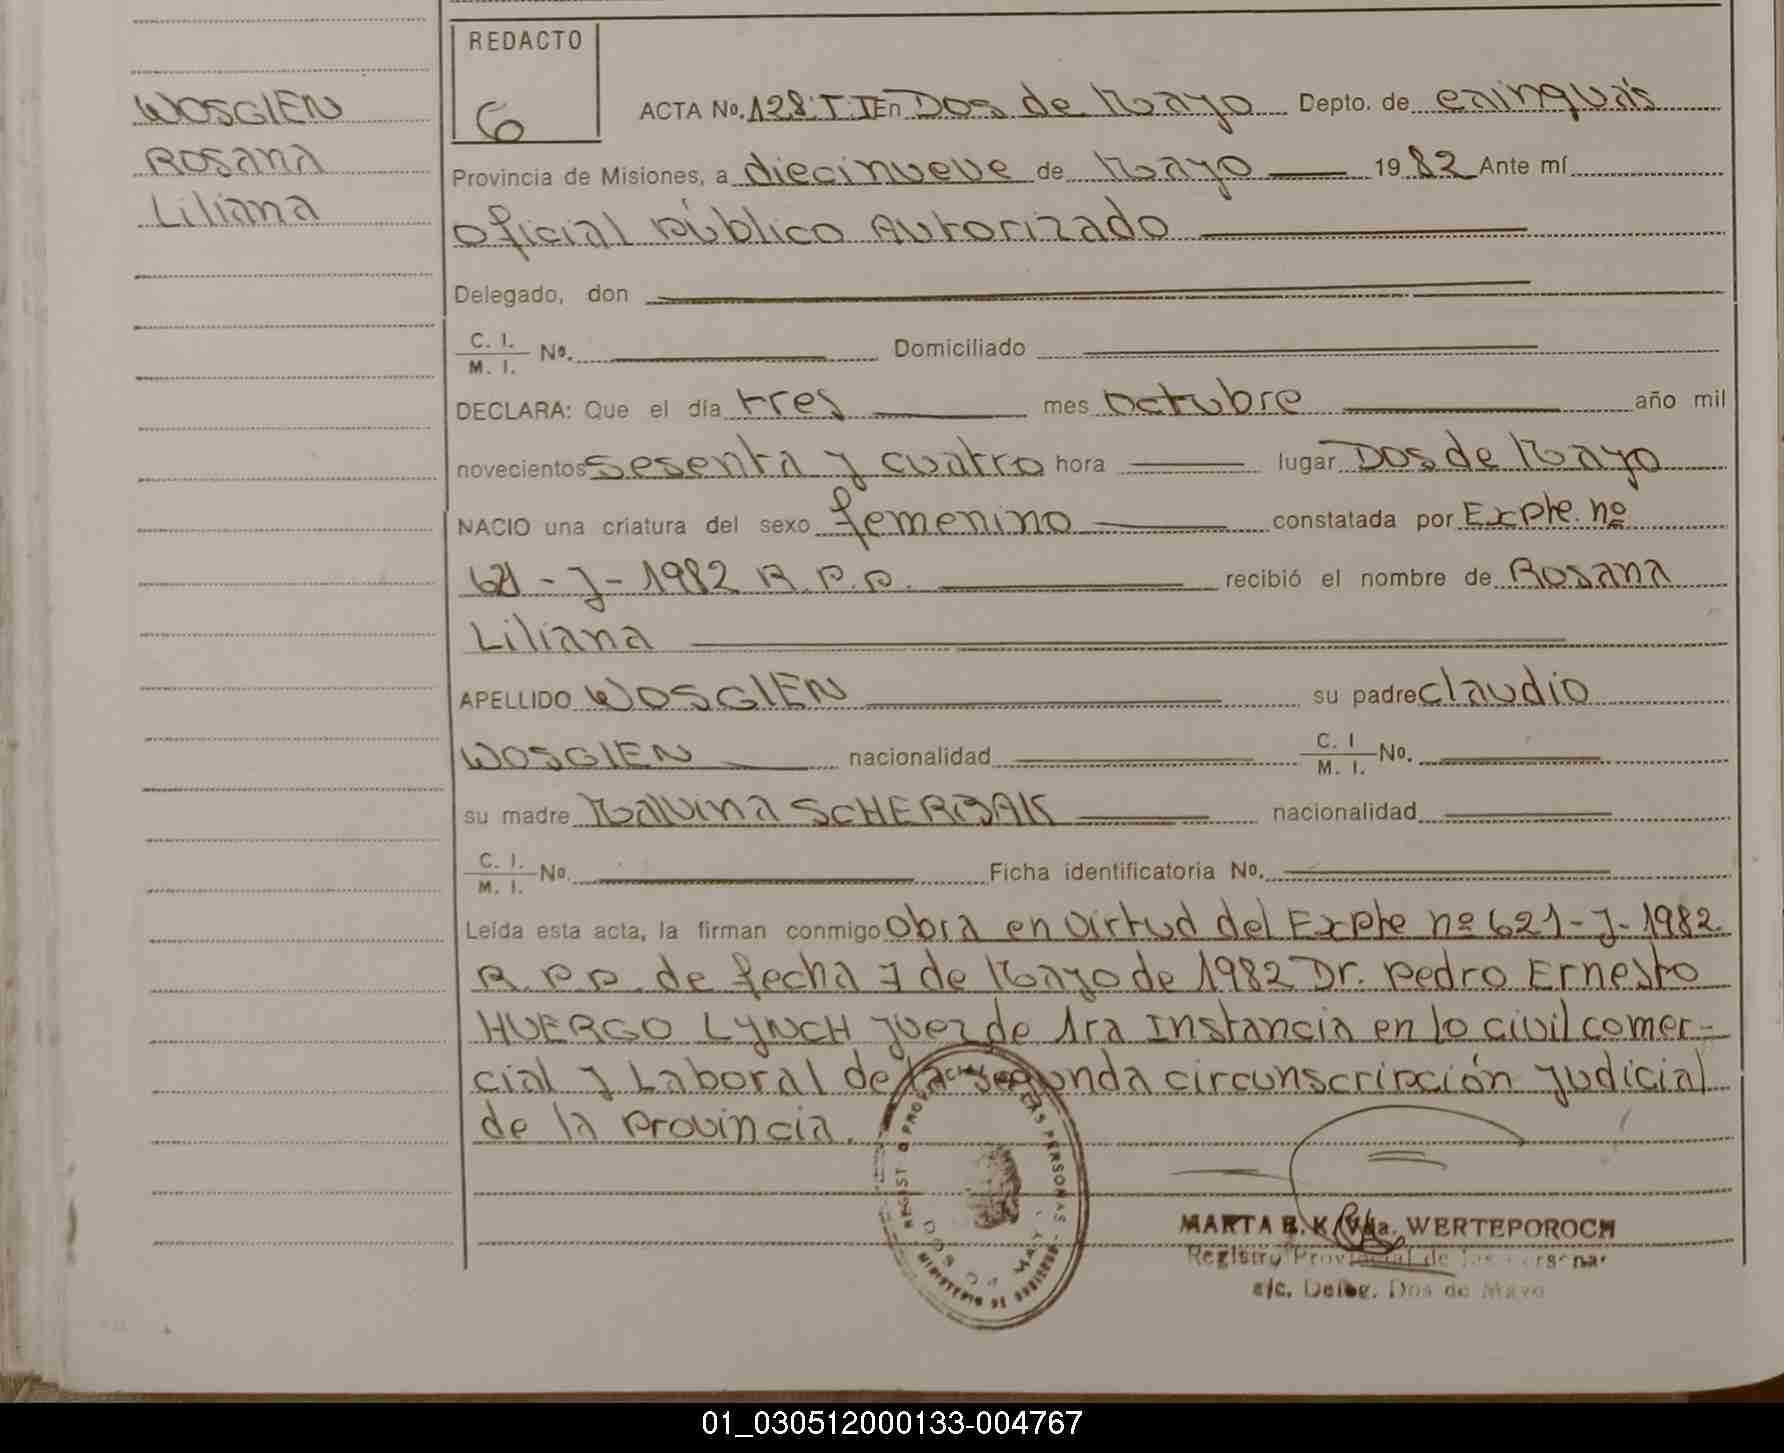 WOSGIEN
Rosana
Liliana
REDACTO
6
ACTA No. 128 T. I En Dos de Mayo Depto. de Cainguás
Provincia de Misiones, a diecinueve de Mayo 1982 Ante mí
Oficial Público Autorizado
Delegado, don
C. I. / M. I. No. Domiciliado
DECLARA: Que el día tres mes octubre año mil
novecientos sesenta y cuatro hora lugar Dos de Mayo
NACIO una criatura del sexo femenino constatada por Expte. nº
621-J-1982 R.P.P. recibió el nombre de Rosana
Liliana
APELLIDO WOSGIEN su padre Claudio
WOSGIEN nacionalidad C. I / M. I. No.
su madre Malvina SCHERBAK nacionalidad
C. I. / M. I. No. Ficha identificatoria No.
Leída esta acta, la firman conmigo Obra en virtud del Expte nº 621-J-1982.
R.P.P. de fecha 7 de Mayo de 1982 Dr. Pedro Ernesto
HUERGO LYNCH Juez de 1ra Instancia en lo civil comer-
cial y Laboral de la segunda circunscripción Judicial
de la Provincia.
MARTA E. K. Vda. WERTEPOROCH
Registro Provincial de las Personas
a/c. Deleg. Dos de Mayo
01_030512000133-004767